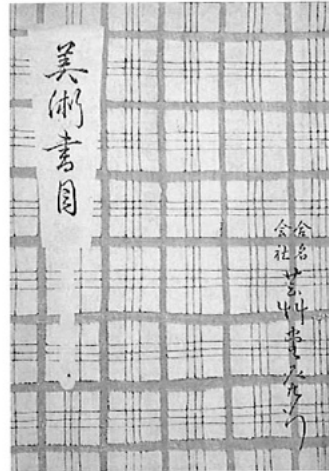 美術書目
合名
会社
芸艸堂